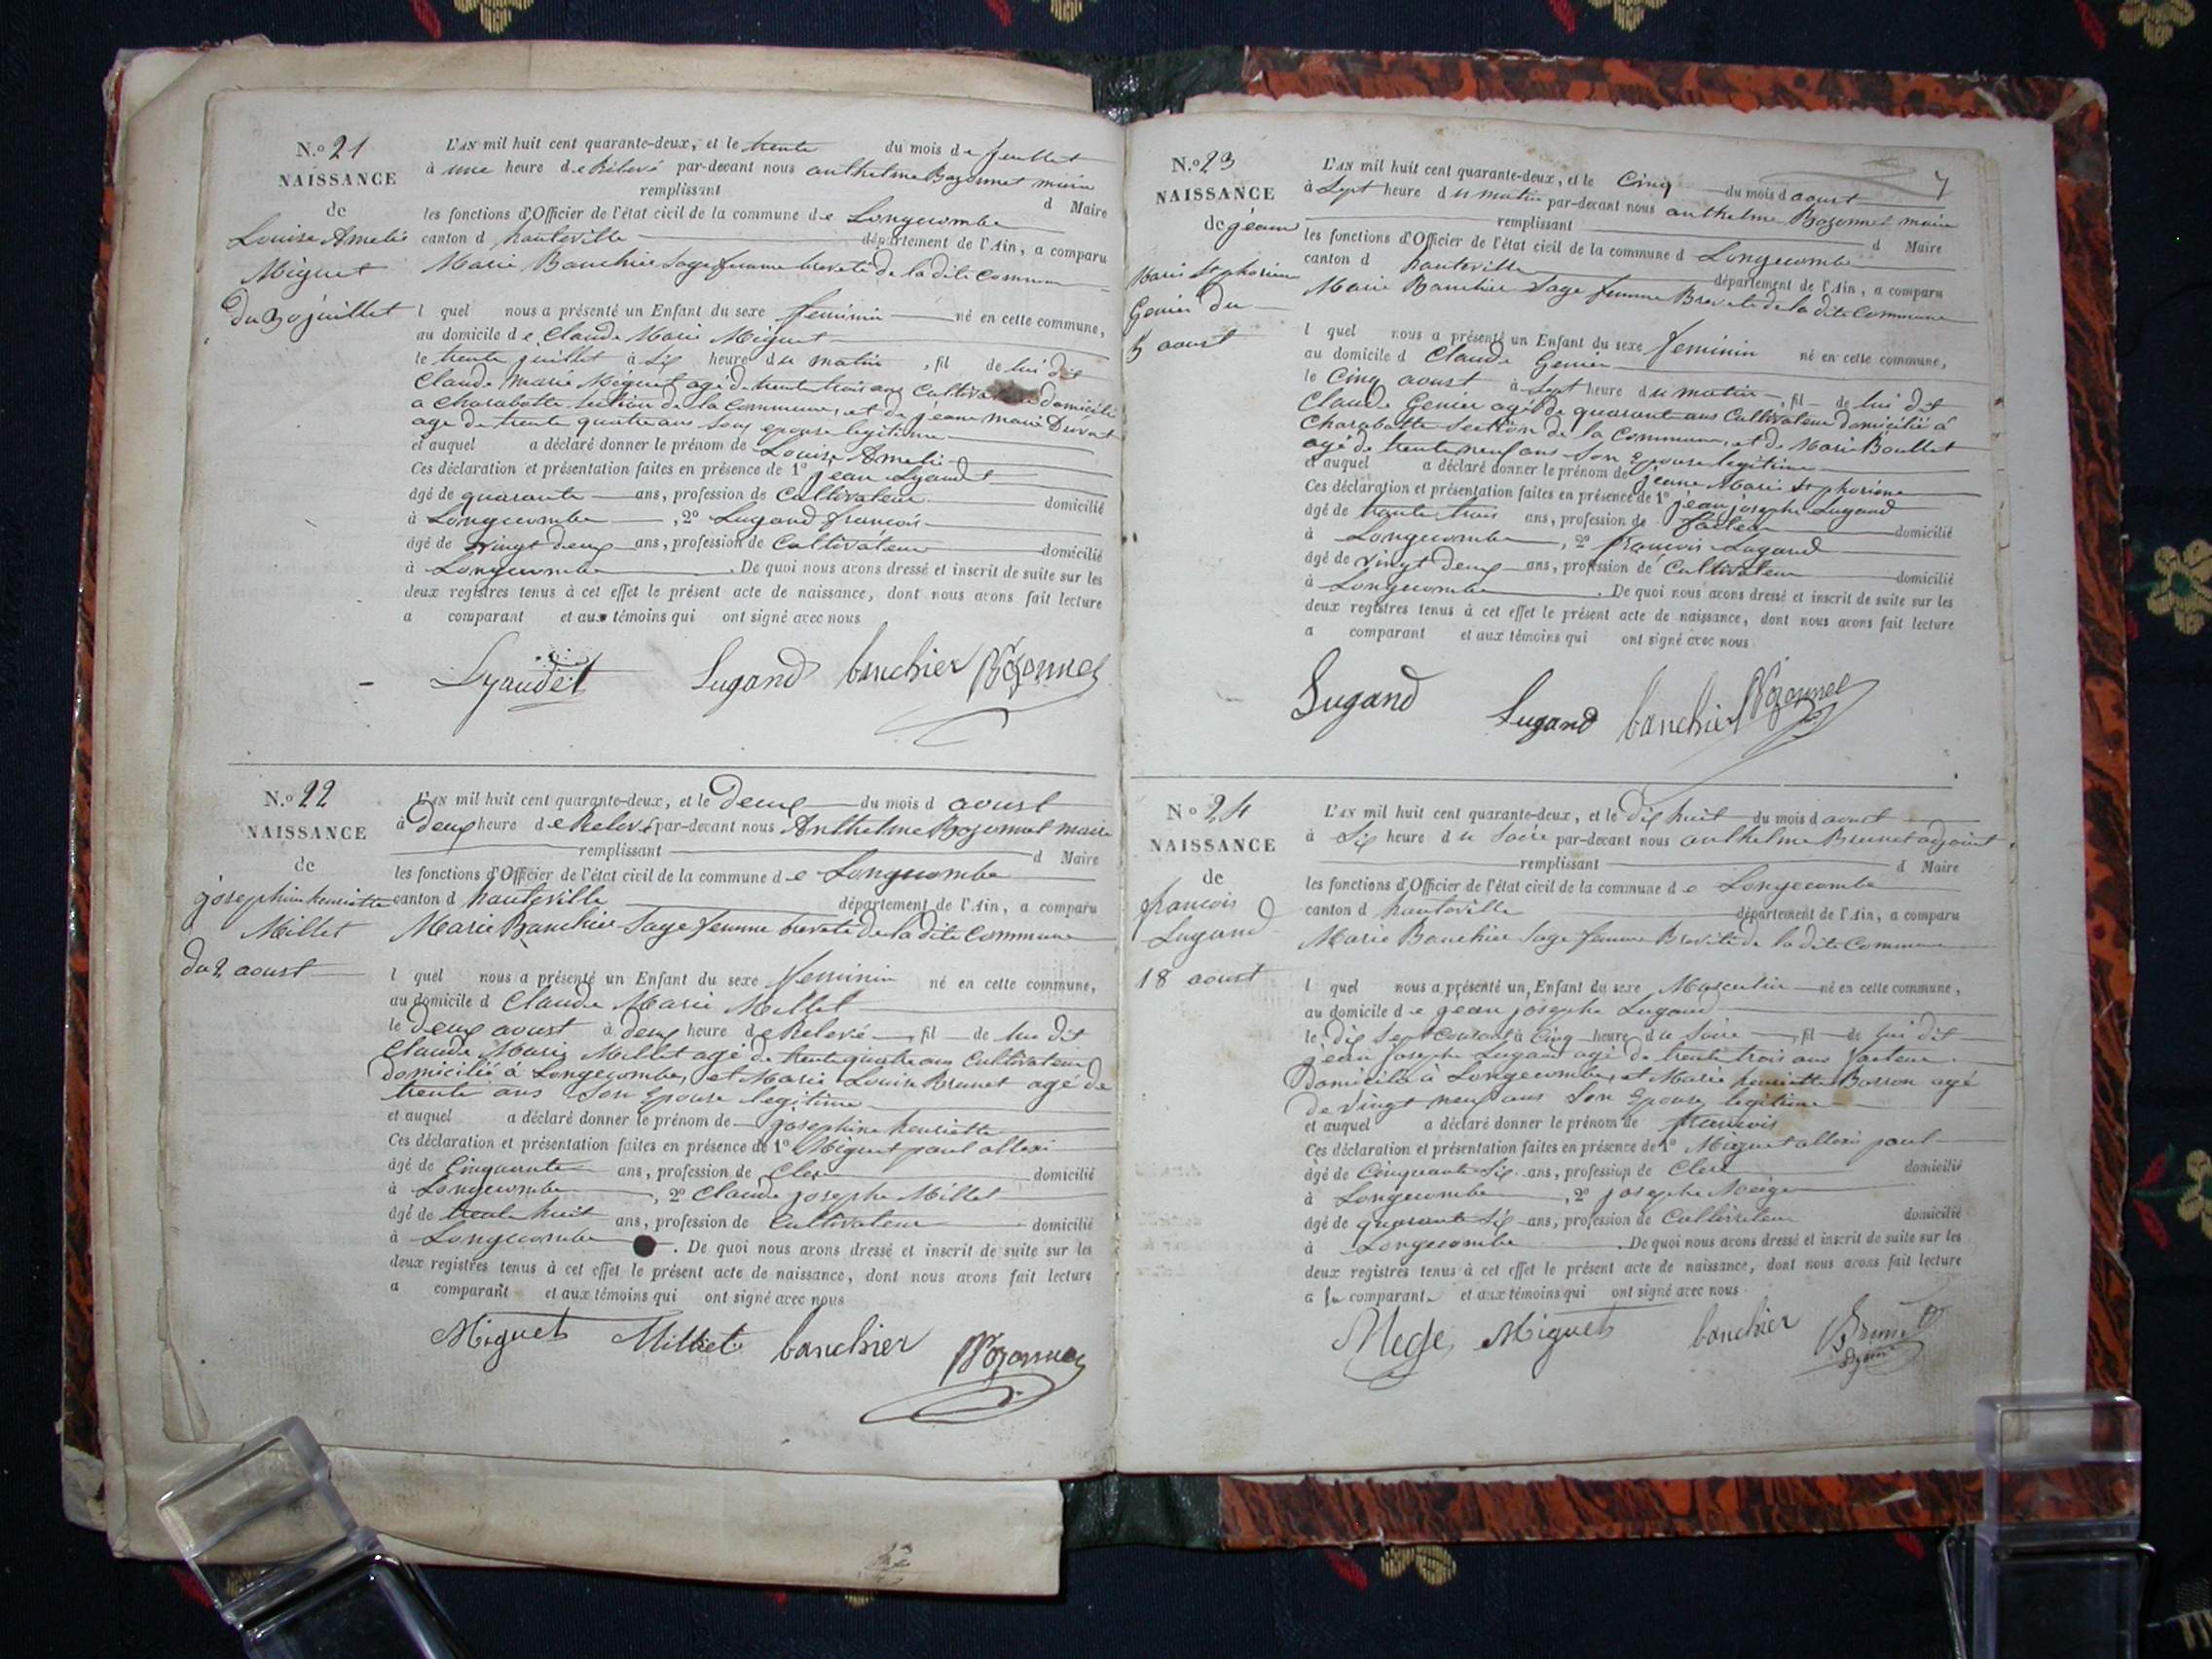 N.º 21
NAISSANCE
de
Louise Amelie
Miguet
du 30 juillet
L'AN mil huit cent quarante-deux, et le trente du mois de juillet
à une heure de Rélevé par-devant nous anthelme Bozonnet maire
remplissant d Maire
les fonctions d'Officier de l'état civil de la commune de Longecombe
canton d hauteville département de l'Ain, a comparu
Marie Bauchier Sage femme breveté de la dite Commune
l quel nous a présenté un Enfant du sexe feminin né en cette commune,
au domicile de Claude Marie Miguet
le trente juillet à Six heure du matin, fil de lui dit
Claude marie Miguet agé de trente trois ans Cultivateur domicilié
a Charabotte Section de la Commune, et de jeane marie
age de trente quatre ans Son epouse legitime
et auquel a déclaré donner le prénom de Louise Amelie
Ces déclaration et présentation faites en présence de 1º jean Lyaudet
âgé de quarante ans, profession de Cultivateur domicilié
à Longecombe, 2º Lugand françois
âgé de vingt deux ans, profession de Cultivateur domicilié
à Longecombe. De quoi nous avons dressé et inscrit de suite sur les
deux registres tenus à cet effet le présent acte de naissance, dont nous avons fait lecture
a comparant et aux témoins qui ont signé avec nous
Lyaudet Lugand bauchier Bozonnet
N.º 22
NAISSANCE
de
josephine henriette
Millet
du 2 aoust
L'AN mil huit cent quarante-deux, et le Deux du mois d aoust
à Deux heure de Relevé par-devant nous Anthelme Bozonnet maire
remplissant d Maire
les fonctions d'Officier de l'état civil de la commune de Longecombe
canton d hauteville département de l'Ain, a comparu
Marie Bauchier Sage femme breveté de la dite Commune
l quel nous a présenté un Enfant du sexe feminin né en cette commune,
au domicile d Claude Marie Millet
le Deux aoust à deux heure de Relevé, fil de lui dit
Claude Marie Millet agé de trente quatre ans Cultivateur
domicilié à Longecombe, et Marie Louise Brunet agé de
trente ans Son Epouse legitime
et auquel a déclaré donner le prénom de josephine henriette
Ces déclaration et présentation faites en présence de 1º Miguet paul allexi
âgé de Cinquante ans, profession de Clerc domicilié
à Longecombe, 2º Claude josephe Millet
âgé de trente huit ans, profession de Cultivateur domicilié
à Longecombe. De quoi nous avons dressé et inscrit de suite sur les
deux registres tenus à cet effet le présent acte de naissance, dont nous avons fait lecture
a comparant et aux témoins qui ont signé avec nous
Miguet Milliet bauchier Bozonnet
7
N.º 23
NAISSANCE
de jeane
Marie
Genier du
5 aoust
L'AN mil huit cent quarante-deux, et le Cinq du mois d aoust
à Sept heure du matin par-devant nous anthelme Bozonnet maire
remplissant d Maire
les fonctions d'Officier de l'état civil de la commune d Longecombe
canton d hauteville département de l'Ain, a comparu
Marie Bauchier Sage femme Breveté de la dite Commune
l quel nous a présenté un Enfant du sexe feminin né en cette commune,
au domicile d Claude Genier
le Cinq aoust à Sept heure du matin, fil de lui dit
Claude Genier agé de quarante ans Cultivateur domicilié à
Charabotte Section de la Commune, et de Marie Boullet
agé de trente neuf ans Son Epouse legitime
et auquel a déclaré donner le prénom de jeane Marie
Ces déclaration et présentation faites en présence de 1º jean josephe Lugand
âgé de trente trois ans, profession de facteur domicilié
à Longecombe, 2º françois Lugand
âgé de vingt deux ans, profession de Cultivateur domicilié
à Longecombe. De quoi nous avons dressé et inscrit de suite sur les
deux registres tenus à cet effet le présent acte de naissance, dont nous avons fait lecture
a comparant et aux témoins qui ont signé avec nous
Lugand Lugand bauchier Bozonnet
Nº 24
NAISSANCE
de
francois
Lugand
18 aoust
L'AN mil huit cent quarante-deux, et le Dix huit du mois d aoust
à Six heure du Soire par-devant nous anthelme Brunet adjoint
remplissant d Maire
les fonctions d'Officier de l'état civil de la commune de Longecombe
canton d hauteville département de l'Ain, a comparu
Marie Bauchier Sage femme Breveté de la dite Commune
l quel nous a présenté un Enfant du sexe Masculin né en cette commune,
au domicile de jean josephe Lugand
le dix Sept Courant à Cinq heure du Soire, fil de lui dit
jean josephe Lugand agé de trente trois ans facteur
Domicilié à Longecombe, et Marie henriette Borron agé
de vingt neuf ans Son Epouse legitime
et auquel a déclaré donner le prénom de francois
Ces déclaration et présentation faites en présence de 1º Miguet allexi paul
âgé de Cinquante Six ans, profession de Clerc domicilié
à Longecombe, 2º josephe Mege
âgé de quarante Six ans, profession de Cultivateur domicilié
à Longecombe. De quoi nous avons dressé et inscrit de suite sur les
deux registres tenus à cet effet le présent acte de naissance, dont nous avons fait lecture
a la comparante et aux témoins qui ont signé avec nous
Mege Miguet bauchier Brunet